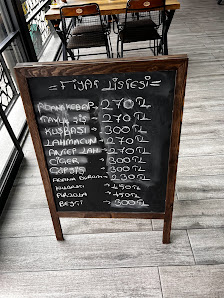 = FİYAT LİSTESİ =
ADANA KEBAP - 270 TL
TAVUK ŞİŞ - 270 TL
KUŞBAŞI - 300 TL
LAHMACUN - 270 TL
ANTEP LAH - 270 TL
CİĞER - 300 TL
ÇÖPŞİŞ - 300 TL
ADANA DÜRÜM - 230 TL
150 TL
150 TL
BEYTİ - 300 TL